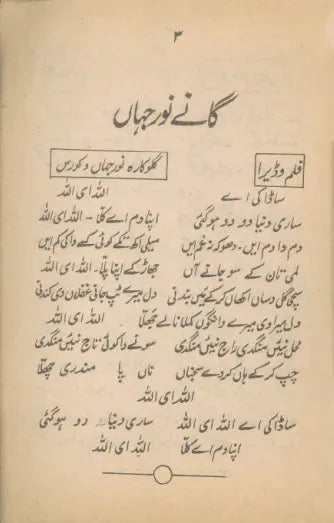 ۳
گانے نور جہاں
فلم وڈیرا گلوکارہ نور جہاں و کورس
ساڈا کی اے اللہ ای اللہ
ساری دنیا دو دو ہو گئی اپنا دم اے کلا - اللہ ای اللہ
دم دا دم ایں - دھوکہ نہ غم ایں میلی اکھ تکے کوئی کسے دا کی کم ایں
لمی تان کے سو جانے آں جھاڑ کے اپنا پلا - اللہ ای اللہ
سچی گل دساں اکھاں کر کے بند نی دل میرے ٹپ جاتی عقلاں دی کندنی
دل میرا وی میرے وانگوں کملا نالے جھلا اللہ ای اللہ
محل نیئں منگدی راج نیئں منگدی سونے دا کوئی تاج نیئں منگدی
چپ کر کے ہاں کر دے سجناں ناں پا مندری چھلا
اللہ ای اللہ
ساڈا کی اے اللہ ای اللہ ساری دنیا دو ہو گئی
اپنا دم اے کلا اللہ ای اللہ